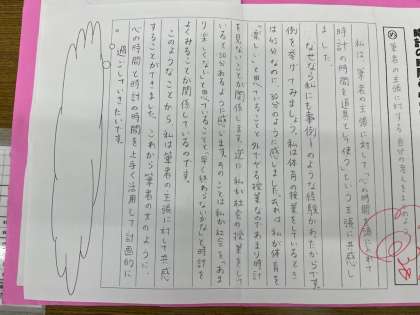 筆者の主張に対する自分の考えをまとめよう
私は、筆者の主張に対して「心の時間を頭に入れて
時計の時間を道具として使う」という主張に共感し
ました。
なぜなら私にも事例1のような経験があたからです。
例を挙げてみましょう。私は体育の授業をしているとき
は45分なのに30分のように感じました。これは、私が体育を
「楽しい」と思っていることと外でやる授業なのであまり時計
を見ないことが関係します。逆に、私が社会の授業をして
いると50分あるように感じます。そのことは私が社会を「あま
り楽しくない」と思っていることと早く終わらないかな」と時計を
よくみることが関係しているのです。
このようなことから、私は筆者の主張に対して共感
することができました。これから筆者の方のように
心の時間と時計の時間を上手く活用して計画的に
過ごしていきたいです。